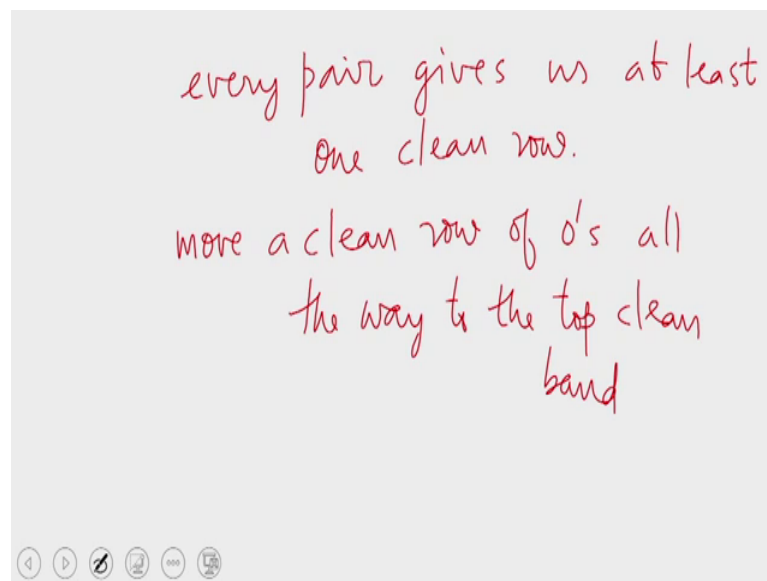 every pair gives us at least
one clean row.
move a clean row of 0's all
the way to the top clean
band